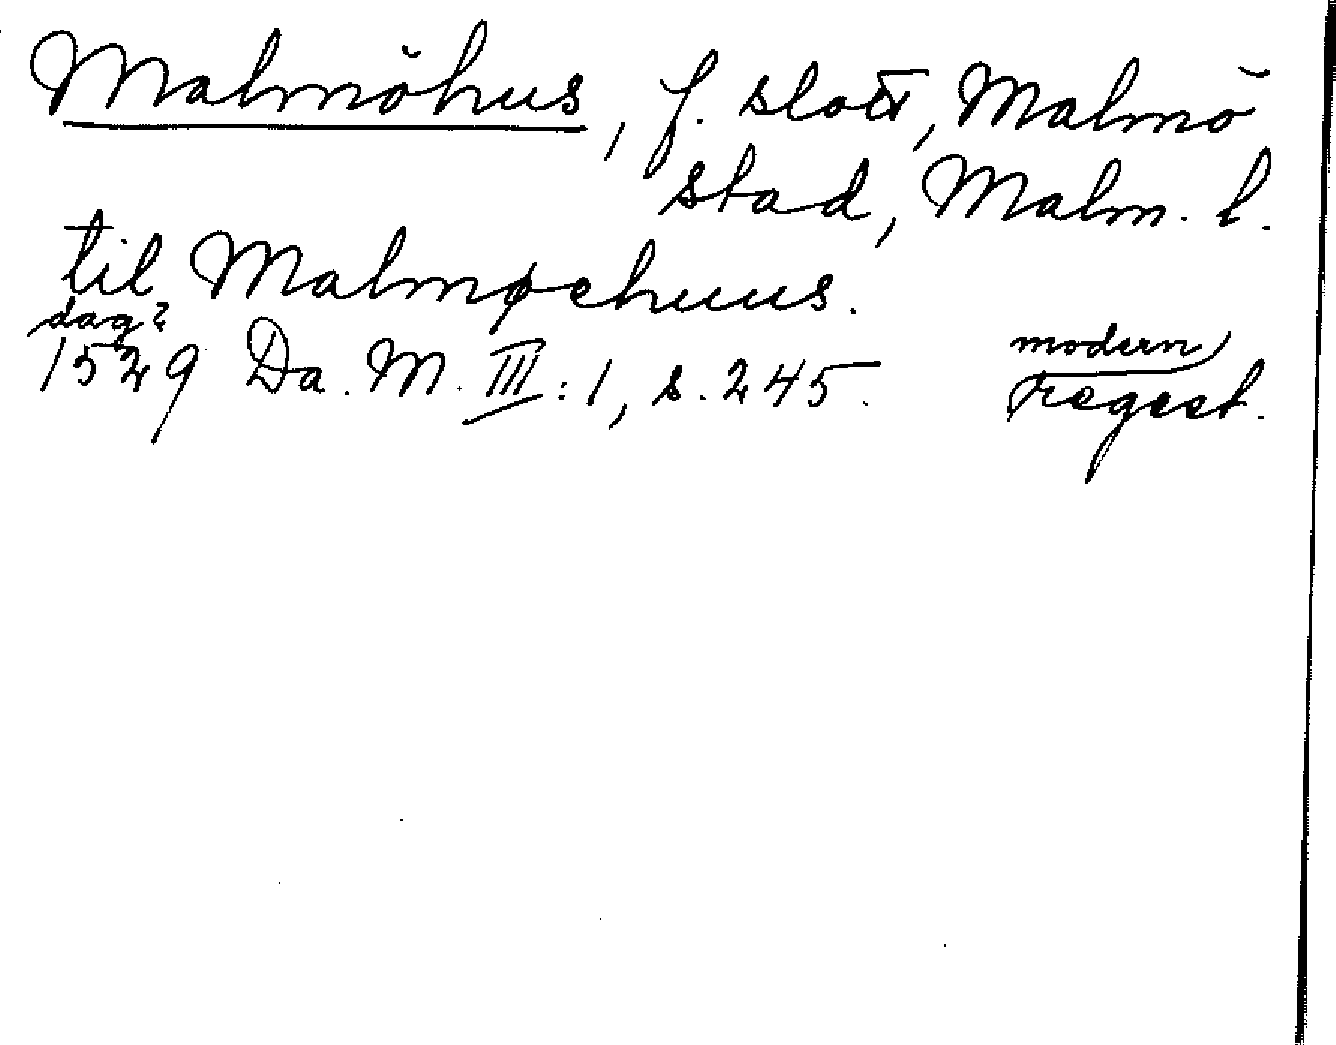 Malmöhus, f. slott, Malmö
stad, Malm. l.
til Malmøehuus.
dag?
1529 Da. M. III:1, s. 245.
modern
regest.